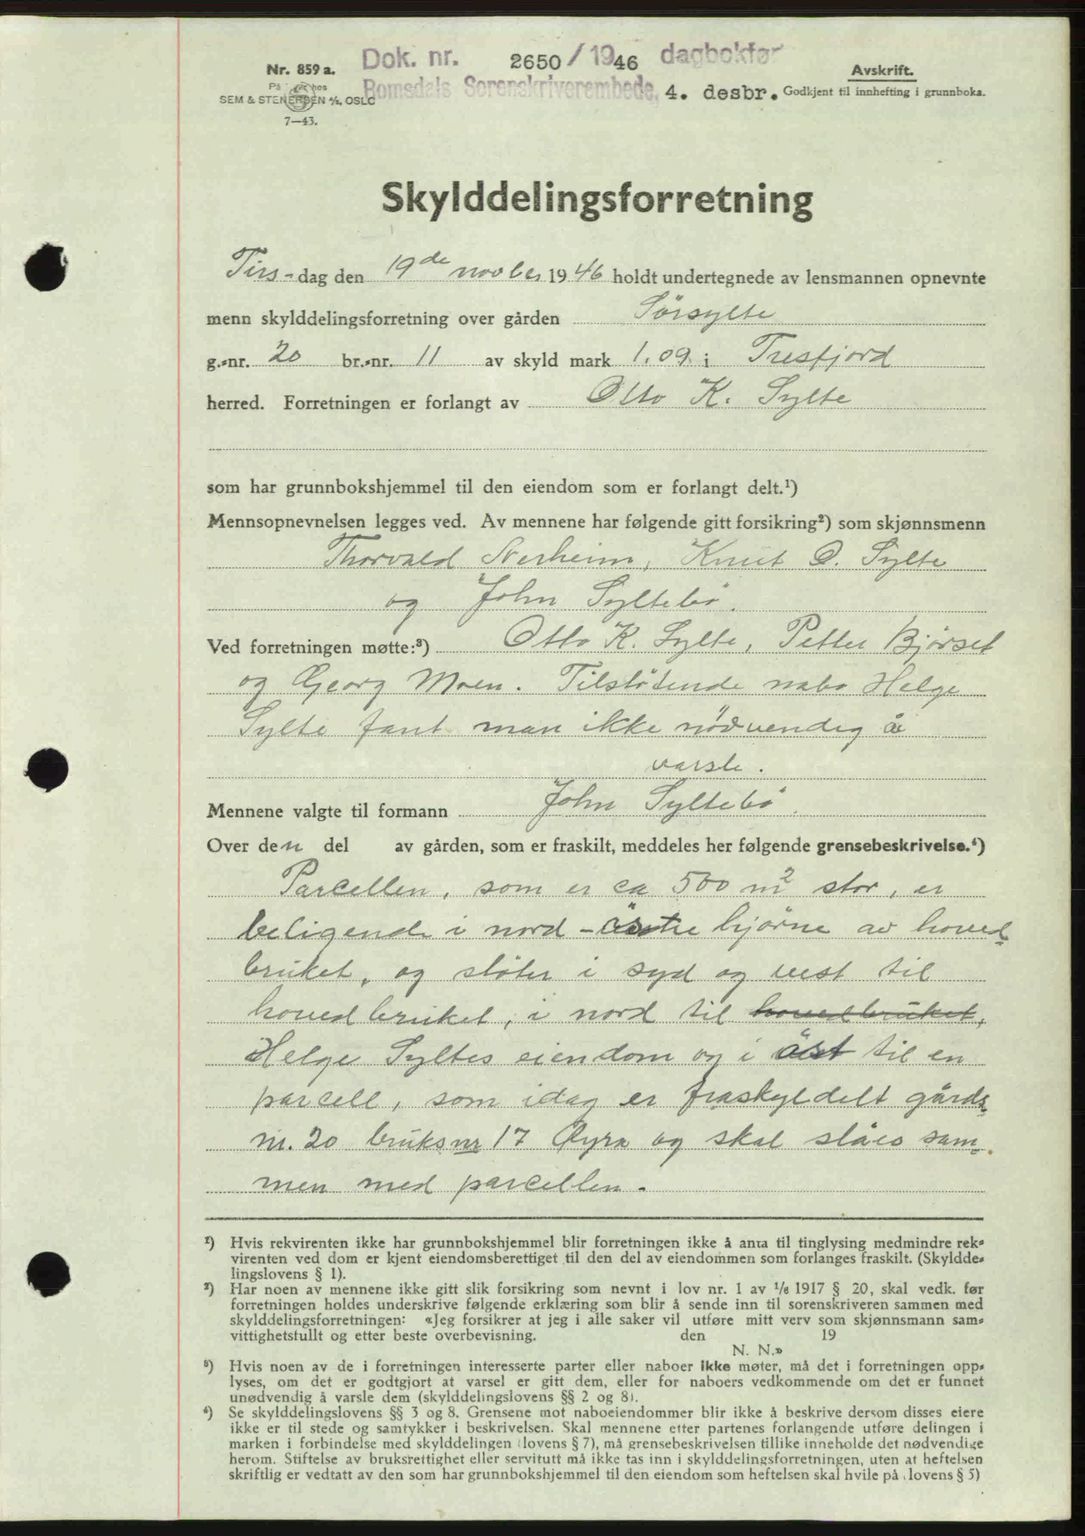 Dok. nr. 2650 / 1946 dagbokfør
Romsdals Sorenskriverembede, 4. desbr.
Nr. 859 a.
På hos
SEM & STENERSEN A/S, OSLO
7—43.
Avskrift.
Godkjent til innhefting i grunnboka.
Skylddelingsforretning
Tirs-dag den 19de novbr 1946 holdt undertegnede av lensmannen opnevnte
menn skylddelingsforretning over gården Sørsylte
g.-nr. 20 br.-nr. 11 av skyld mark 1.09 i Tresfjord
herred. Forretningen er forlangt av Otto K. Sylte
som har grunnbokshjemmel til den eiendom som er forlangt delt.¹)
Mennsopnevnelsen legges ved. Av mennene har følgende gitt forsikring²) som skjønnsmenn
Thorvald Nerheim, Knut O. Sylte
og John Syltebø.
Ved forretningen møtte:³) Otto K. Sylte, Petter Bjørset
og Georg Moen. Tilstøtende nabo Helge
Sylte fant man ikke nødvendig å
varsle.
Mennene valgte til formann John Syltebø.
Over den del av gården, som er fraskilt, meddeles her følgende grensebeskrivelse.⁴)
Parcellen, som er ca 500 m² stor, er
beligende i nord-østre hjørne av hoved-
bruket, og støter i syd og vest til
hovedbruket, i nord til hovedbruket,
Helge Syltes eiendom og i øst til en
parcell, som idag er fraskyldelt gårds-
nr. 20 bruksnr 17 Øyra og skal slåes sam-
men med parcellen.
¹) Hvis rekvirenten ikke har grunnbokshjemmel blir forretningen ikke å anta til tinglysing medmindre rek-
virenten ved dom er kjent eiendomsberettiget til den del av eiendommen som forlanges fraskilt. (Skyldde-
lingslovens § 1).
²) Har noen av mennene ikke gitt slik forsikring som nevnt i lov nr. 1 av 1/6 1917 § 20, skal vedk. før
forretningen holdes underskrive følgende erklæring som blir å sende inn til sorenskriveren sammen med
skylddelingsforretningen: «Jeg forsikrer at jeg i alle saker vil utføre mitt verv som skjønnsmann sam-
vittighetsfullt og etter beste overbevisning. den 19
N. N.»
³) Hvis noen av de i forretningen interesserte parter eller naboer ikke møter, må det i forretningen opp-
lyses, om det er godtgjort at varsel er gitt dem, eller for naboers vedkommende om det er funnet
unødvendig å varsle dem (skylddelingslovens §§ 2 og 8).
⁴) Se skylddelingslovens §§ 3 og 8. Grensene mot naboeiendommer blir ikke å beskrive dersom disses eiere
ikke er til stede og samtykker i beskrivelsen. Skal mennene etter partenes forlangende utføre delingen i
marken i forbindelse med skylddelingen (lovens § 7), må grensebeskrivelsen tillike inneholde det nødvendige
herom. Stiftelse av bruksrettighet eller servitutt må ikke tas inn i skylddelingsforretningen, uten at heftelsen
skriftlig er vedtatt av den som har grunnbokshjemmel til den eiendom som heftelsen skal hvile på (lovens § 5)